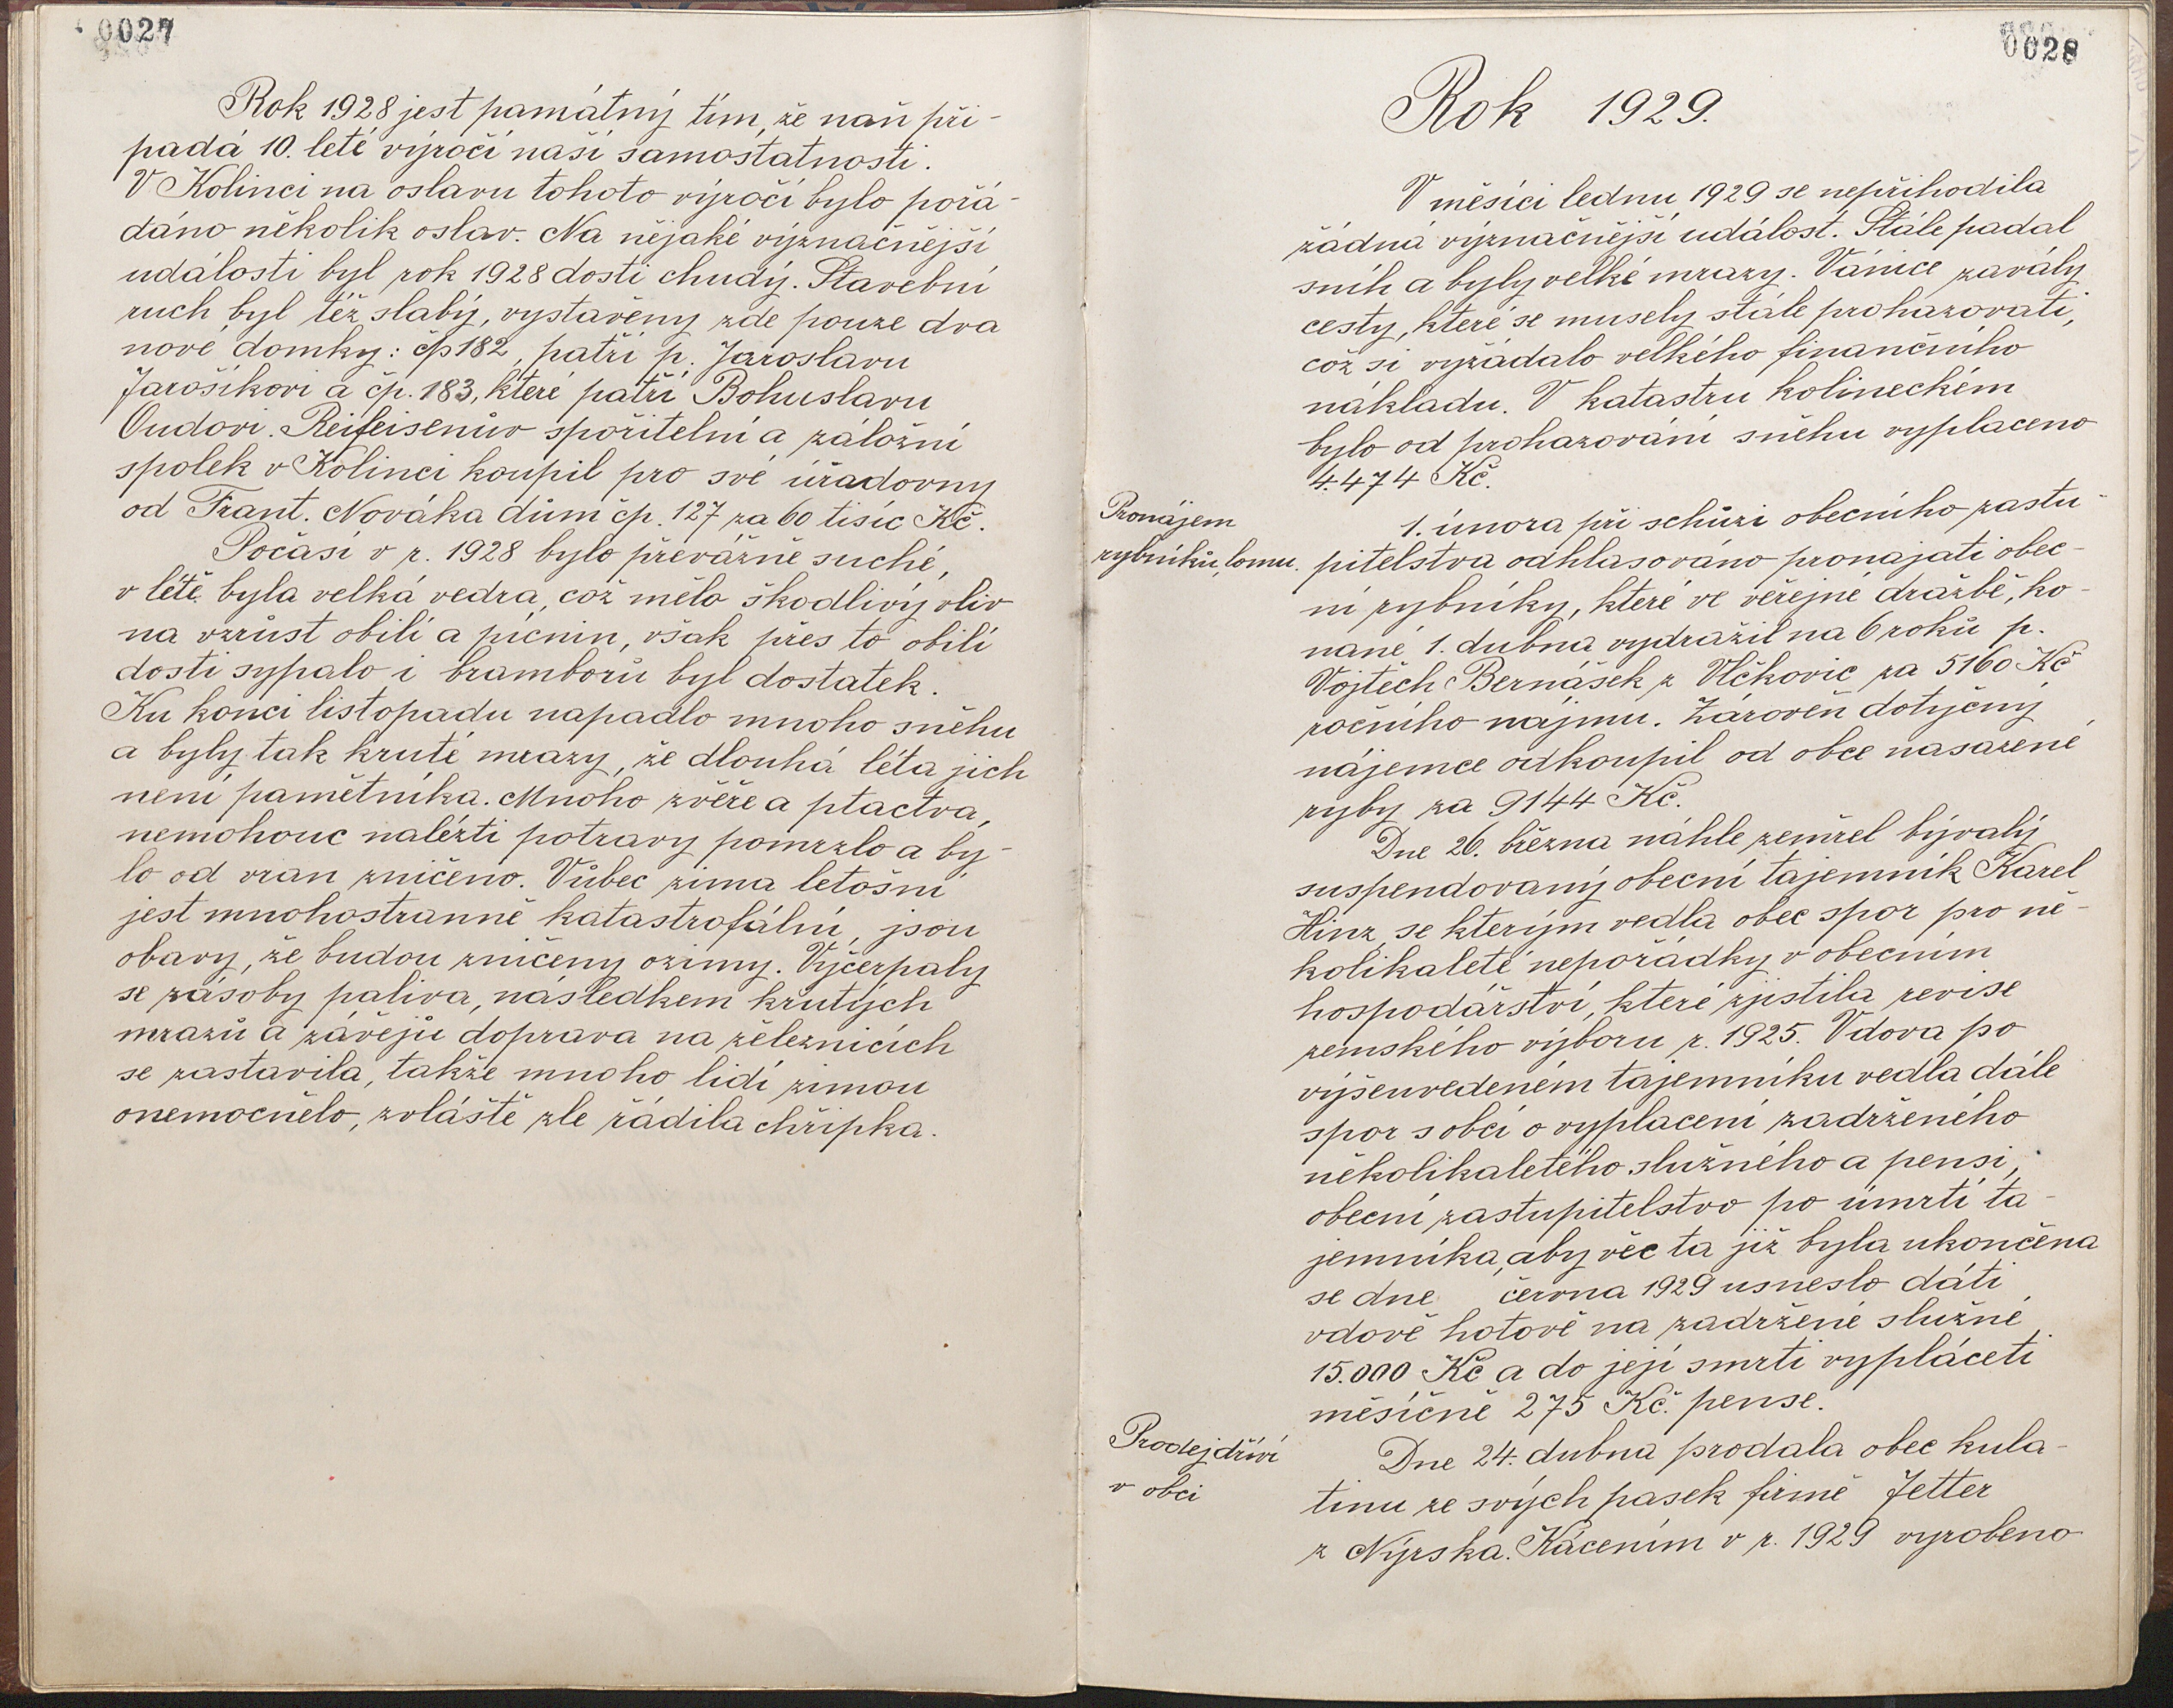 0027
Rok 1928 jest památný tím, že naň při-
padá 10. leté výročí naší samostatnosti.
V Kolinci na oslavu tohoto výročí bylo pořá-
dáno několik oslav. Na nějaké význačnější
události byl rok 1928 dosti chudý. Stavební
ruch byl též slabý, vystavěny zde pouze dva
nové domky: čp 182, patří p. Jaroslavu
Jarošíkovi a čp. 183, které patří Bohuslavu
Oudovi. Reifeisenův spořitelní a záložní
spolek v Kolinci koupil pro své úřadovny
od Frant. Nováka dům čp. 127 za 60 tisíc Kč.
Počasí v r. 1928 bylo převážně suché,
v létě byla velká vedra, což mělo škodlivý vliv
na vzrůst obilí a pícnin, však přes to obilí
dosti sypalo i bramborů byl dostatek.
Ku konci listopadu napadlo mnoho sněhu
a byly tak kruté mrazy, že dlouhá léta jich
není pamětníka. Mnoho zvěře a ptactva,
nemohouc nalézti potravy pomrzlo a by-
lo od vran zničeno. Vůbec zima letošní
jest mnohostranně katastrofální, jsou
obavy, že budou zničeny ozimy. Vyčerpaly
se zásoby paliva, následkem krutých
mrazů a závějů doprava na železnicích
se zastavila, takže mnoho lidí zimou
onemocnělo, zvláště zle řádila chřipka.
0028
Rok 1929.
V měsíci lednu 1929 se nepřihodila
žádná význačnější událost. Stále padal
sníh a byly velké mrazy. Vánice zavály
cesty, které se musely stále prohazovati,
což si vyžádalo velkého finančního
nákladu. V katastru kolineckém
bylo od prohazování sněhu vyplaceno
4.474 Kč.
Pronájem
rybníků, lomu.
1. února při schůzi obecního zastu-
pitelstva odhlasováno pronajati obec-
ní rybníky, které ve veřejné dražbě, ko-
nané 1. dubna vydražil na 6 roků p.
Vojtěch Bernášek z Vlčkovic za 5160 Kč
ročního nájmu. Zároveň dotyčný
nájemce odkoupil od obce nasazené
ryby za 9144 Kč.
Dne 26. března náhle zemřel bývalý
suspendovaný obecní tajemník Karel
Hinz, se kterým vedla obec spor pro ně-
kolikaleté nepořádky v obecním
hospodářství, které zjistila revise
zemského výboru r. 1925. Vdova po
výšeuvedeném tajemníku vedla dále
spor s obcí o vyplacení zadrženého
několikaletého služného a pensi,
obecní zastupitelstvo po úmrtí ta-
jemníka, aby věc ta již byla ukončena
se dne června 1929 usneslo dáti
vdově hotově na zadržené služné
15.000 Kč a do její smrti vypláceti
měsíčně 275 Kč. pense.
Prodej dříví
v obci
Dne 24. dubna prodala obec kula-
tinu ze svých pasek firmě Jetter
z Nýrska. Kácením v r. 1929 vyrobeno